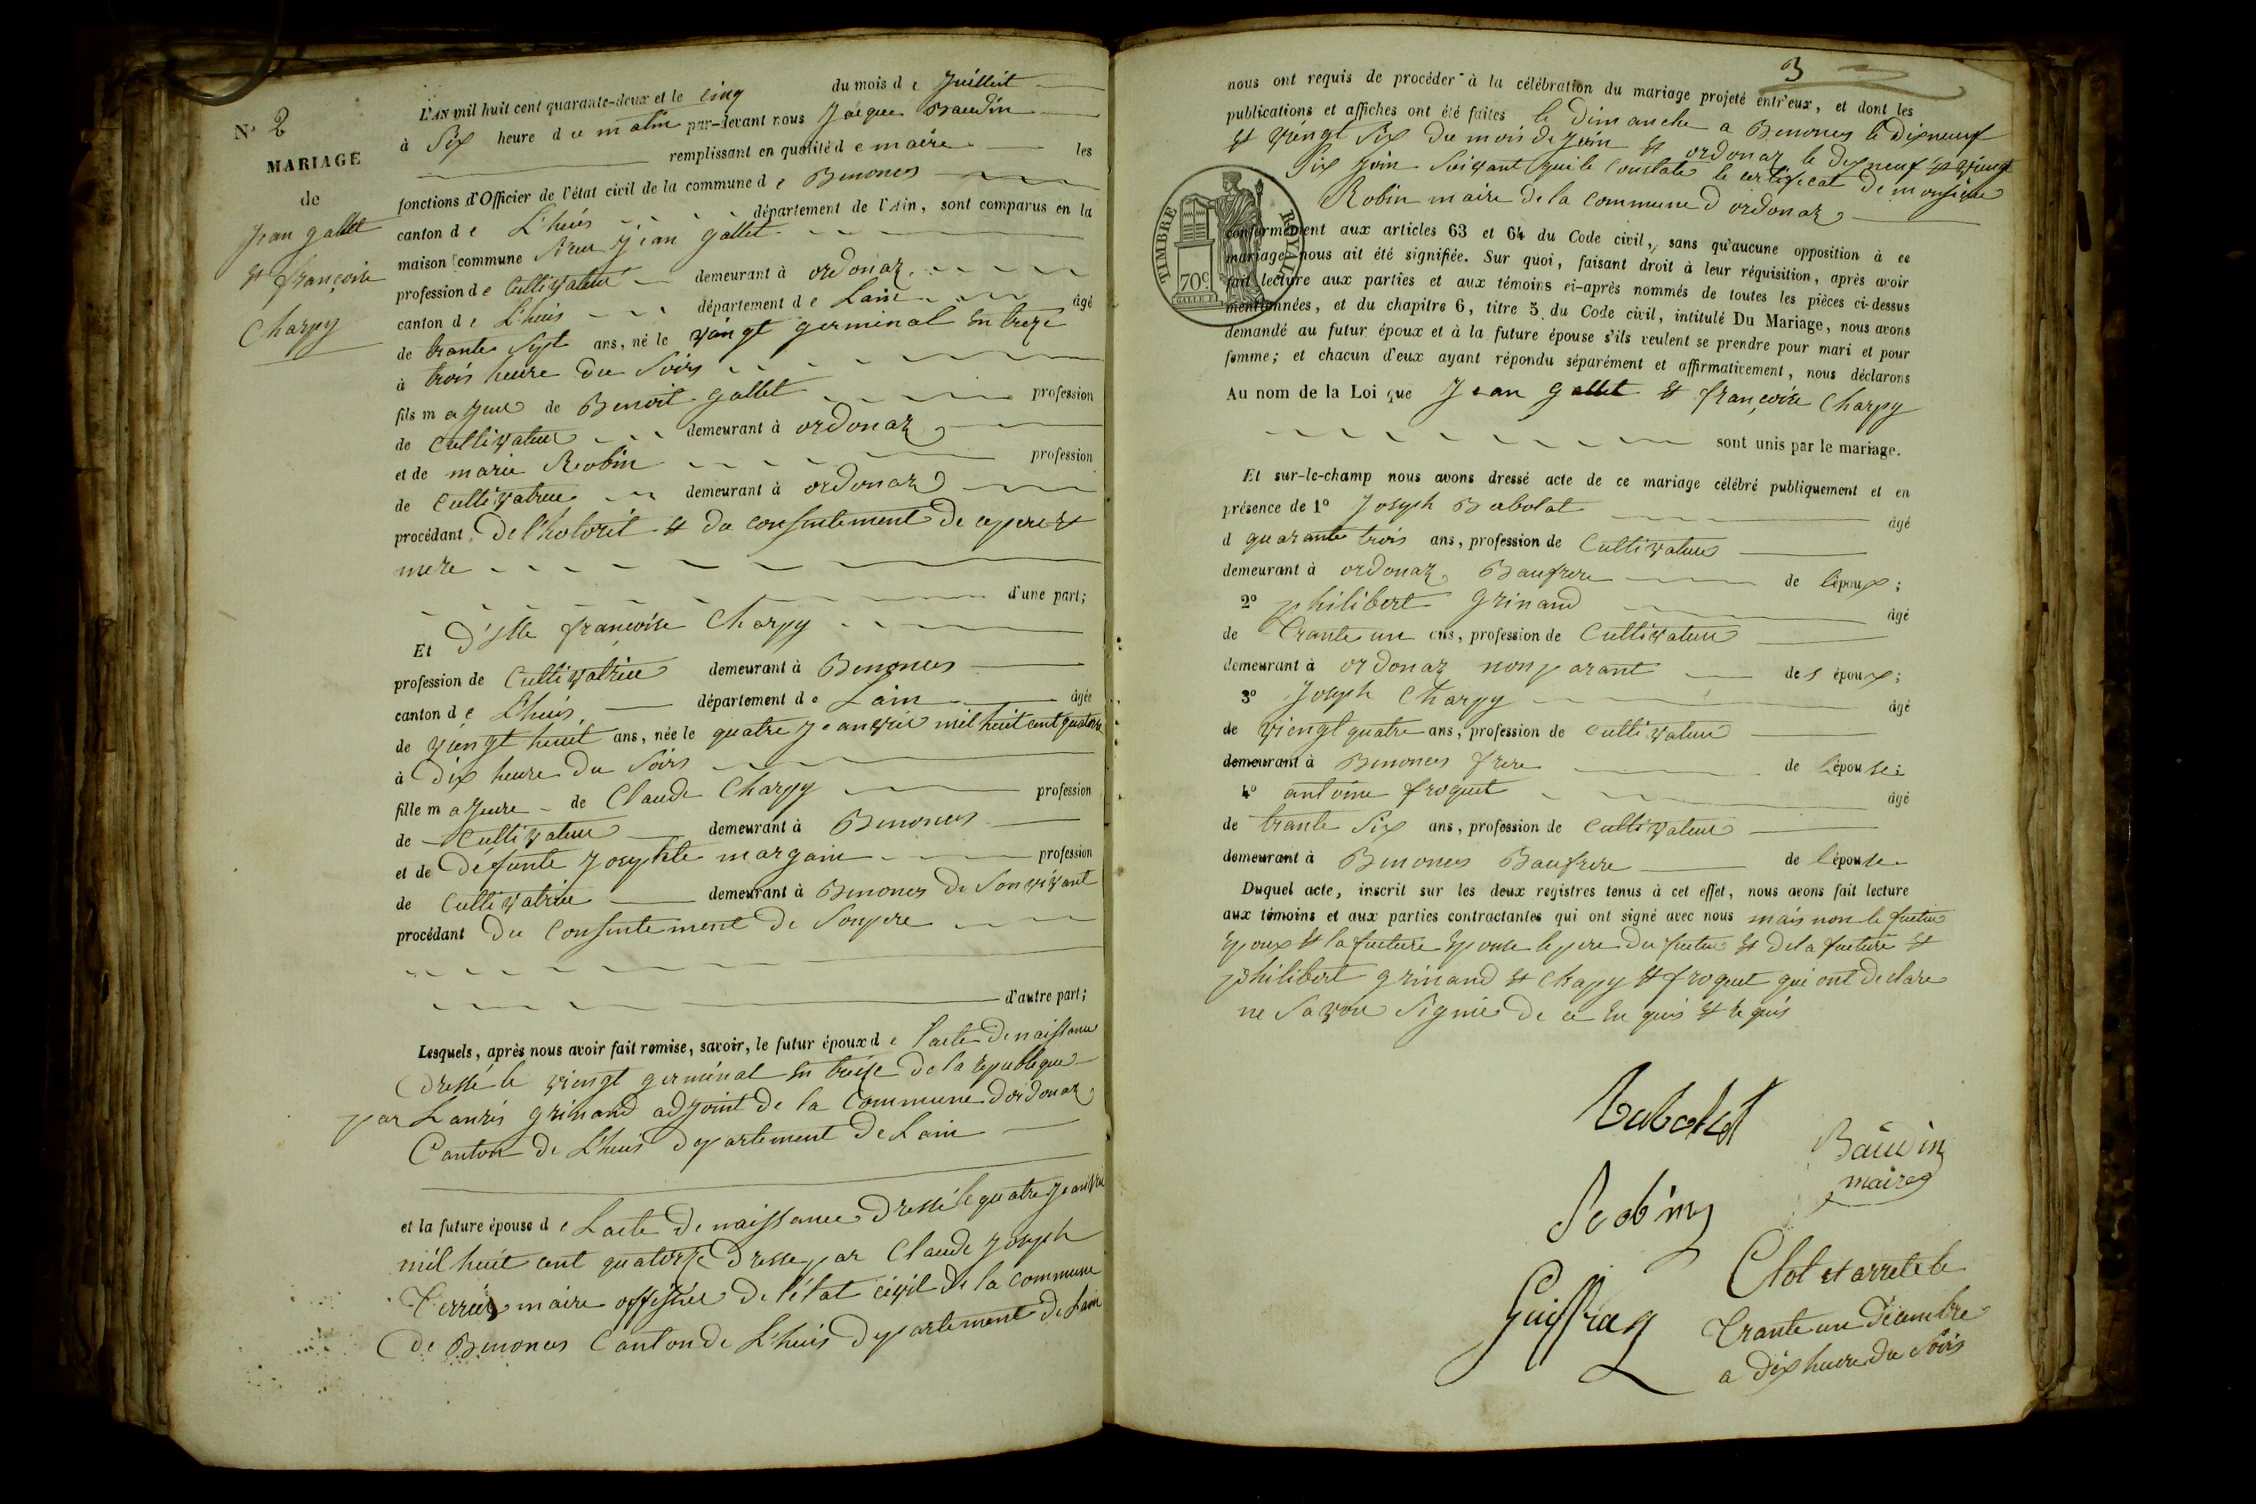 N.º 2
MARIAGE
de
Jean gallet
et françoise
Charpy
L'AN mil huit cent quarante-deux et le cinq du mois de Juillet
à Six heure d u matin par-devant nous Jacque Baudin
remplissant en qualité d e maire les
fonctions d'Officier de l'état civil de la commune d e Benonces
canton d e L'huis département de l'Ain, sont comparus en la
maison commune Sieur Jean gallet
profession d e Cultivateur demeurant à ordonaz
canton d e L'huis département d e Lain âgé
de trante Sept ans, né le vingt germinal En treze
à trois heure du Soirs
fils m ajeur de Benoit gallet profession
de Cultivateur demeurant à ordonaz
et de marie Robin profession
de Cultivatrice demeurant à ordonaz
procédant De l'hotorit et du consentement de ce pere et
mere
d'une part;
Et D'elle françoise Charpy
profession de Cultivatrice demeurant à Benonces
canton d e L'huis département d e Lain âgée
de viengt huit ans, née le quatre Janvier mil huit cent quatorze
à Dix heure du Soirs
fille m ajeure de Claude Charpy profession
de Cultivateur demeurant à Benonces
et de défunte Josephte margain profession
de Cultivatrice demeurant à Benonces De Son vivant
procédant du Consentement de Son pere
d'autre part;
Lesquels, après nous avoir fait remise, savoir, le futur époux d e l'acte De naissance
Dressé le viengt germinal En treize de la republique
par Lauris grinand adjoint de la Commune D'ordonaz
Canton de L'huis departement De Lain
et la future épouse d e Lacte De naissance Dressé le quatre Janvier
mil huit cent quatorze Dresse par Claude Joseph
Terrier maire offisier De l'état civil de la commune
de Benonces Canton de L'huis Departement de Lain
3
nous ont requis de procéder à la célébration du mariage projeté entr'eux, et dont les
publications et affiches ont été faites le Dimanche a Benonces le dixneuf
et viengt Six du mois de Juin et ordonaz le dix neuf et vingt
Six Juin Suivant que le Constate le certificat de monsieur
Robin maire de la Commune D'ordonaz
TIMBRE ROYAL
70 c.
conformément aux articles 63 et 64 du Code civil, sans qu'aucune opposition à ce
mariage nous ait été signifiée. Sur quoi, faisant droit à leur réquisition, après avoir
fait lecture aux parties et aux témoins ci-après nommés de toutes les pièces ci-dessus
mentionnées, et du chapitre 6, titre 5 du Code civil, intitulé Du Mariage, nous avons
demandé au futur époux et à la future épouse s'ils veulent se prendre pour mari et pour
femme; et chacun d'eux ayant répondu séparément et affirmativement, nous déclarons
Au nom de la Loi que Jean gallet et françoise Charpy
sont unis par le mariage.
Et sur-le-champ nous avons dressé acte de ce mariage célébré publiquement et en
présence de 1º Joseph Babolat âgé
d quarante trois ans, profession de Cultivateur
demeurant à ordonaz Baufrere de l'époux;
2º philibert grinand âgé
de trante un ans, profession de Cultivateur
demeurant à ordonaz non parant des époux;
3º Joseph Charpy âgé
de viengt quatre ans, profession de Cultivateur
demeurant à Benonces frere de l'épouse;
4º antoine froquet âgé
de trante Six ans, profession de Cultivateur
demeurant à Benonces Baufrere de l'épouse
Duquel acte, inscrit sur les deux registres tenus à cet effet, nous avons fait lecture
aux témoins et aux parties contractantes qui ont signé avec nous mais non le futur
Epoux et la future Epouse le pere du futur et de la future et
philibert grinand et Chapy et froquet qui ont declare
ne Savoir Signier de ce En quis et requis
Babolat
Baudin
maire
Robin
Guiffray
Clot et arreté le
Trante un Décembre
a Dix heure du Soirs